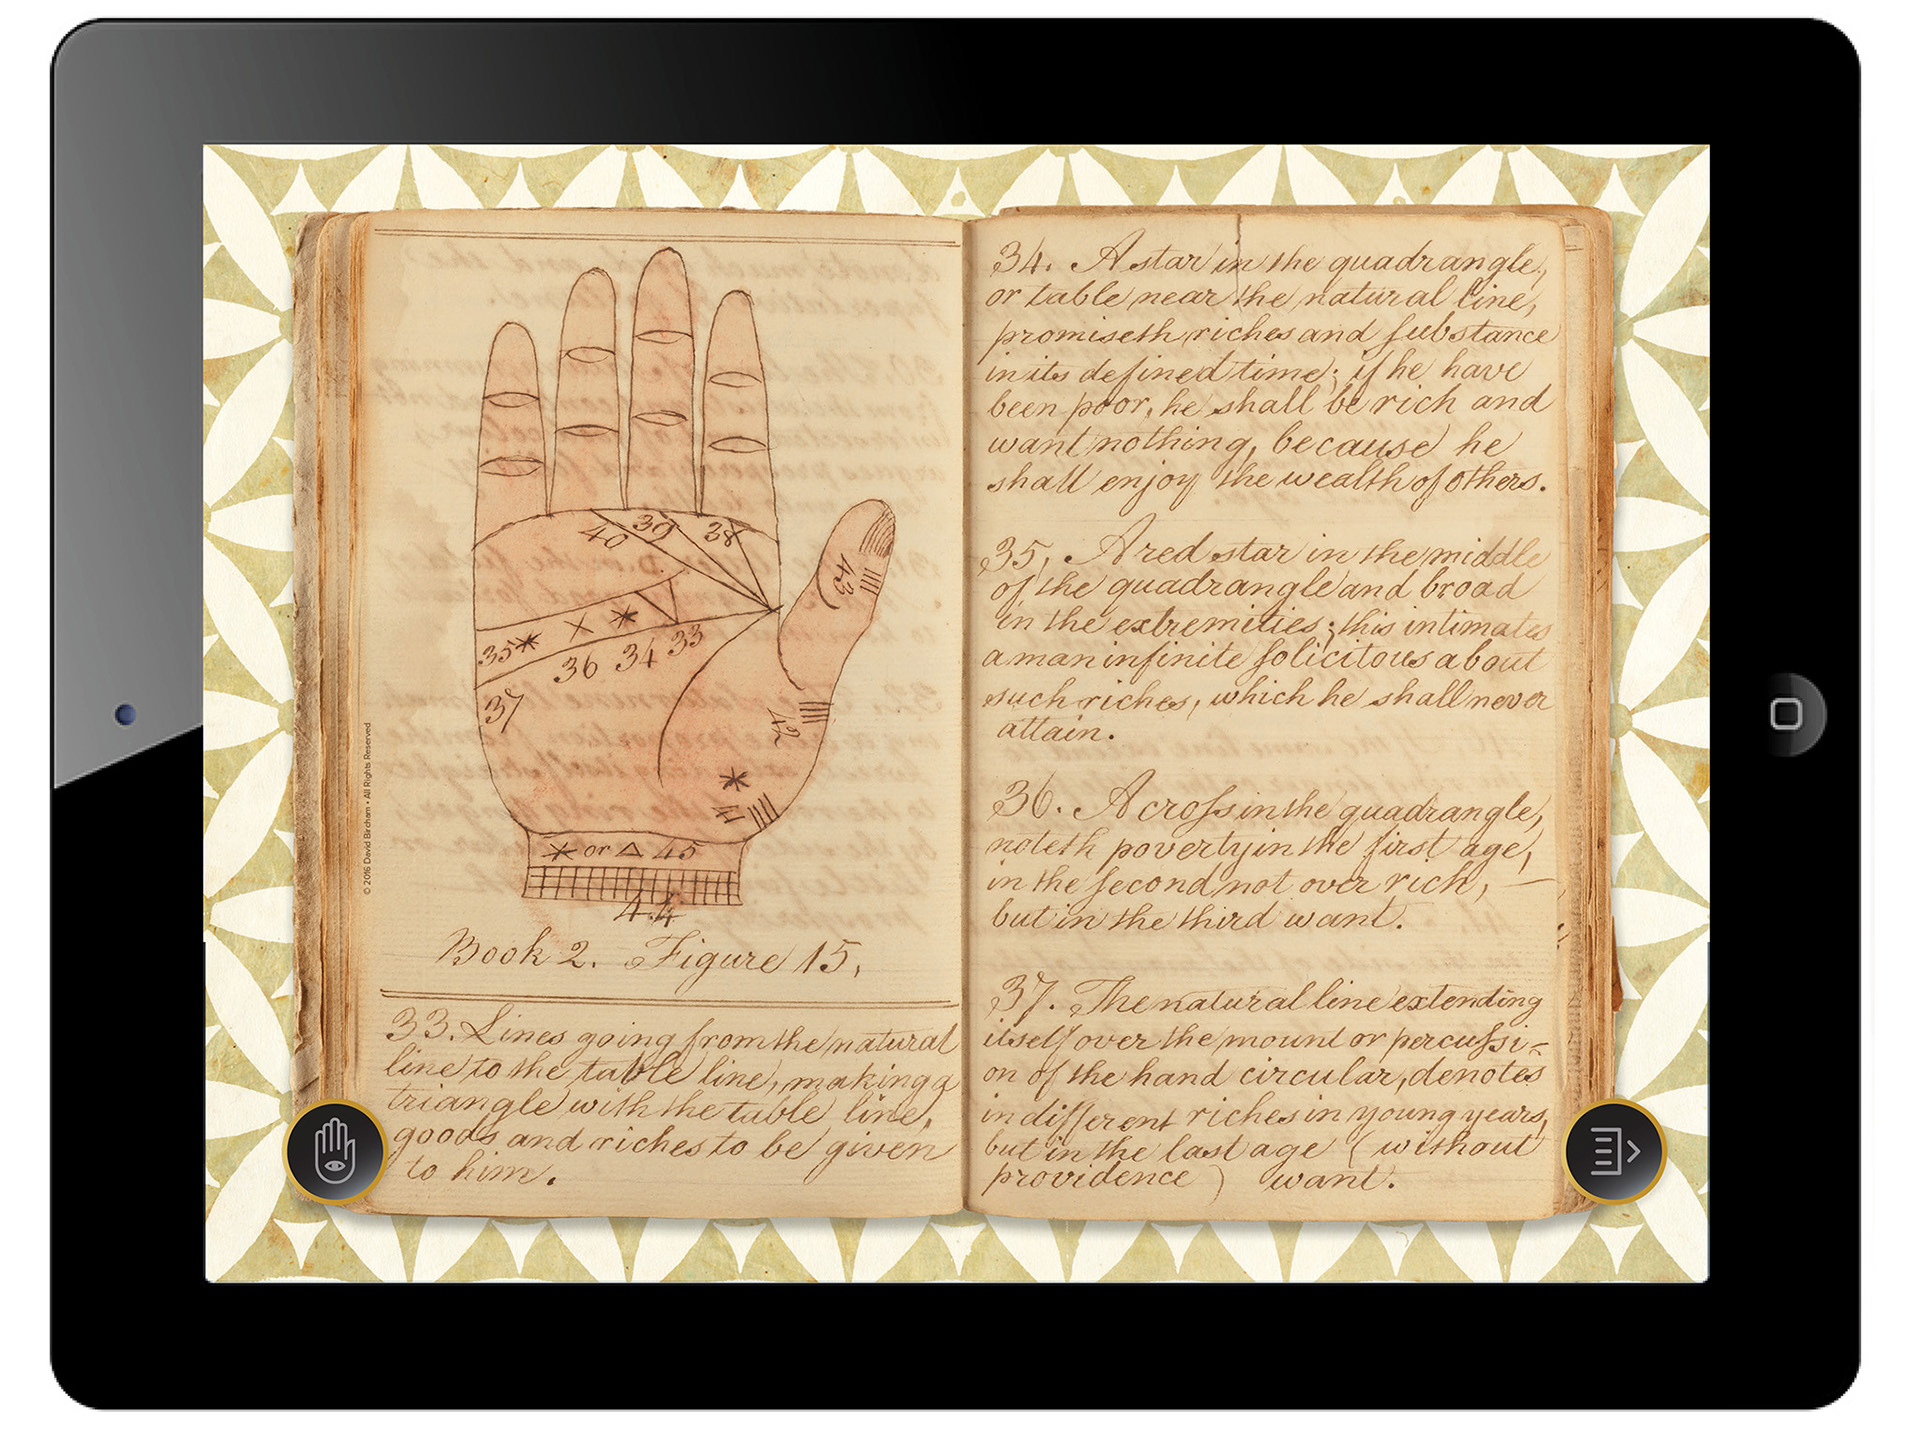 40 39 38
43
35 * X *
36 34 33
37
42
*
41
* or △ 45
44
Book 2. Figure 15.
© 2016 David Bircham • All Rights Reserved
33. Lines going from the natural
line to the table line, making a
triangle with the table line,
goods and riches to be given
to him.
34. A star in the quadrangle,
or table near the natural line,
promiseth riches and ſubstance
in its defined time; if he have
been poor, he shall be rich and
want nothing, because he
shall enjoy the wealth of others.
35, A red star in the middle
of the quadrangle and broad
in the extremities; this intimates
a man infinite ſolicitous about
such riches, which he shall never
attain.
36. A croſs in the quadrangle,
noteth poverty in the first age,
in the ſecond not over rich, —
but in the third want.
37. The natural line extending
itself over the mount or percuſsi-
on of the hand circular, denotes
indifferent riches in young years,
but in the last age (without
providence) want.